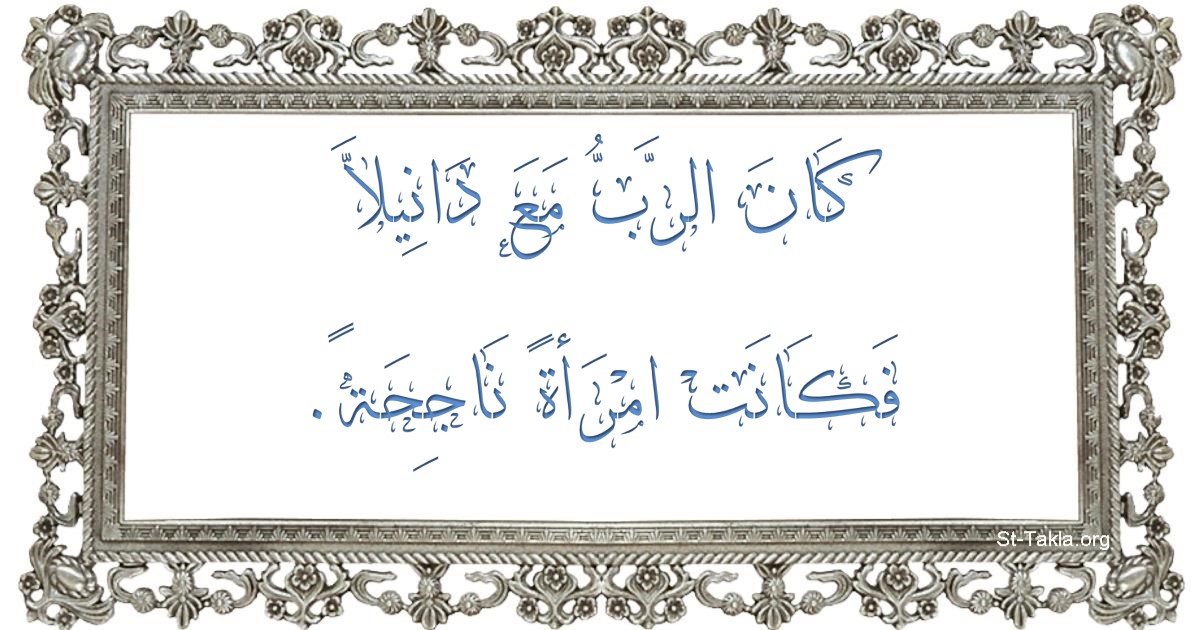 كَانَ الرَّبُّ مَعَ دَانِيلاَّ
فَكَانَتْ امْرَأَةً نَاجِحَةً.
St-Takla.org